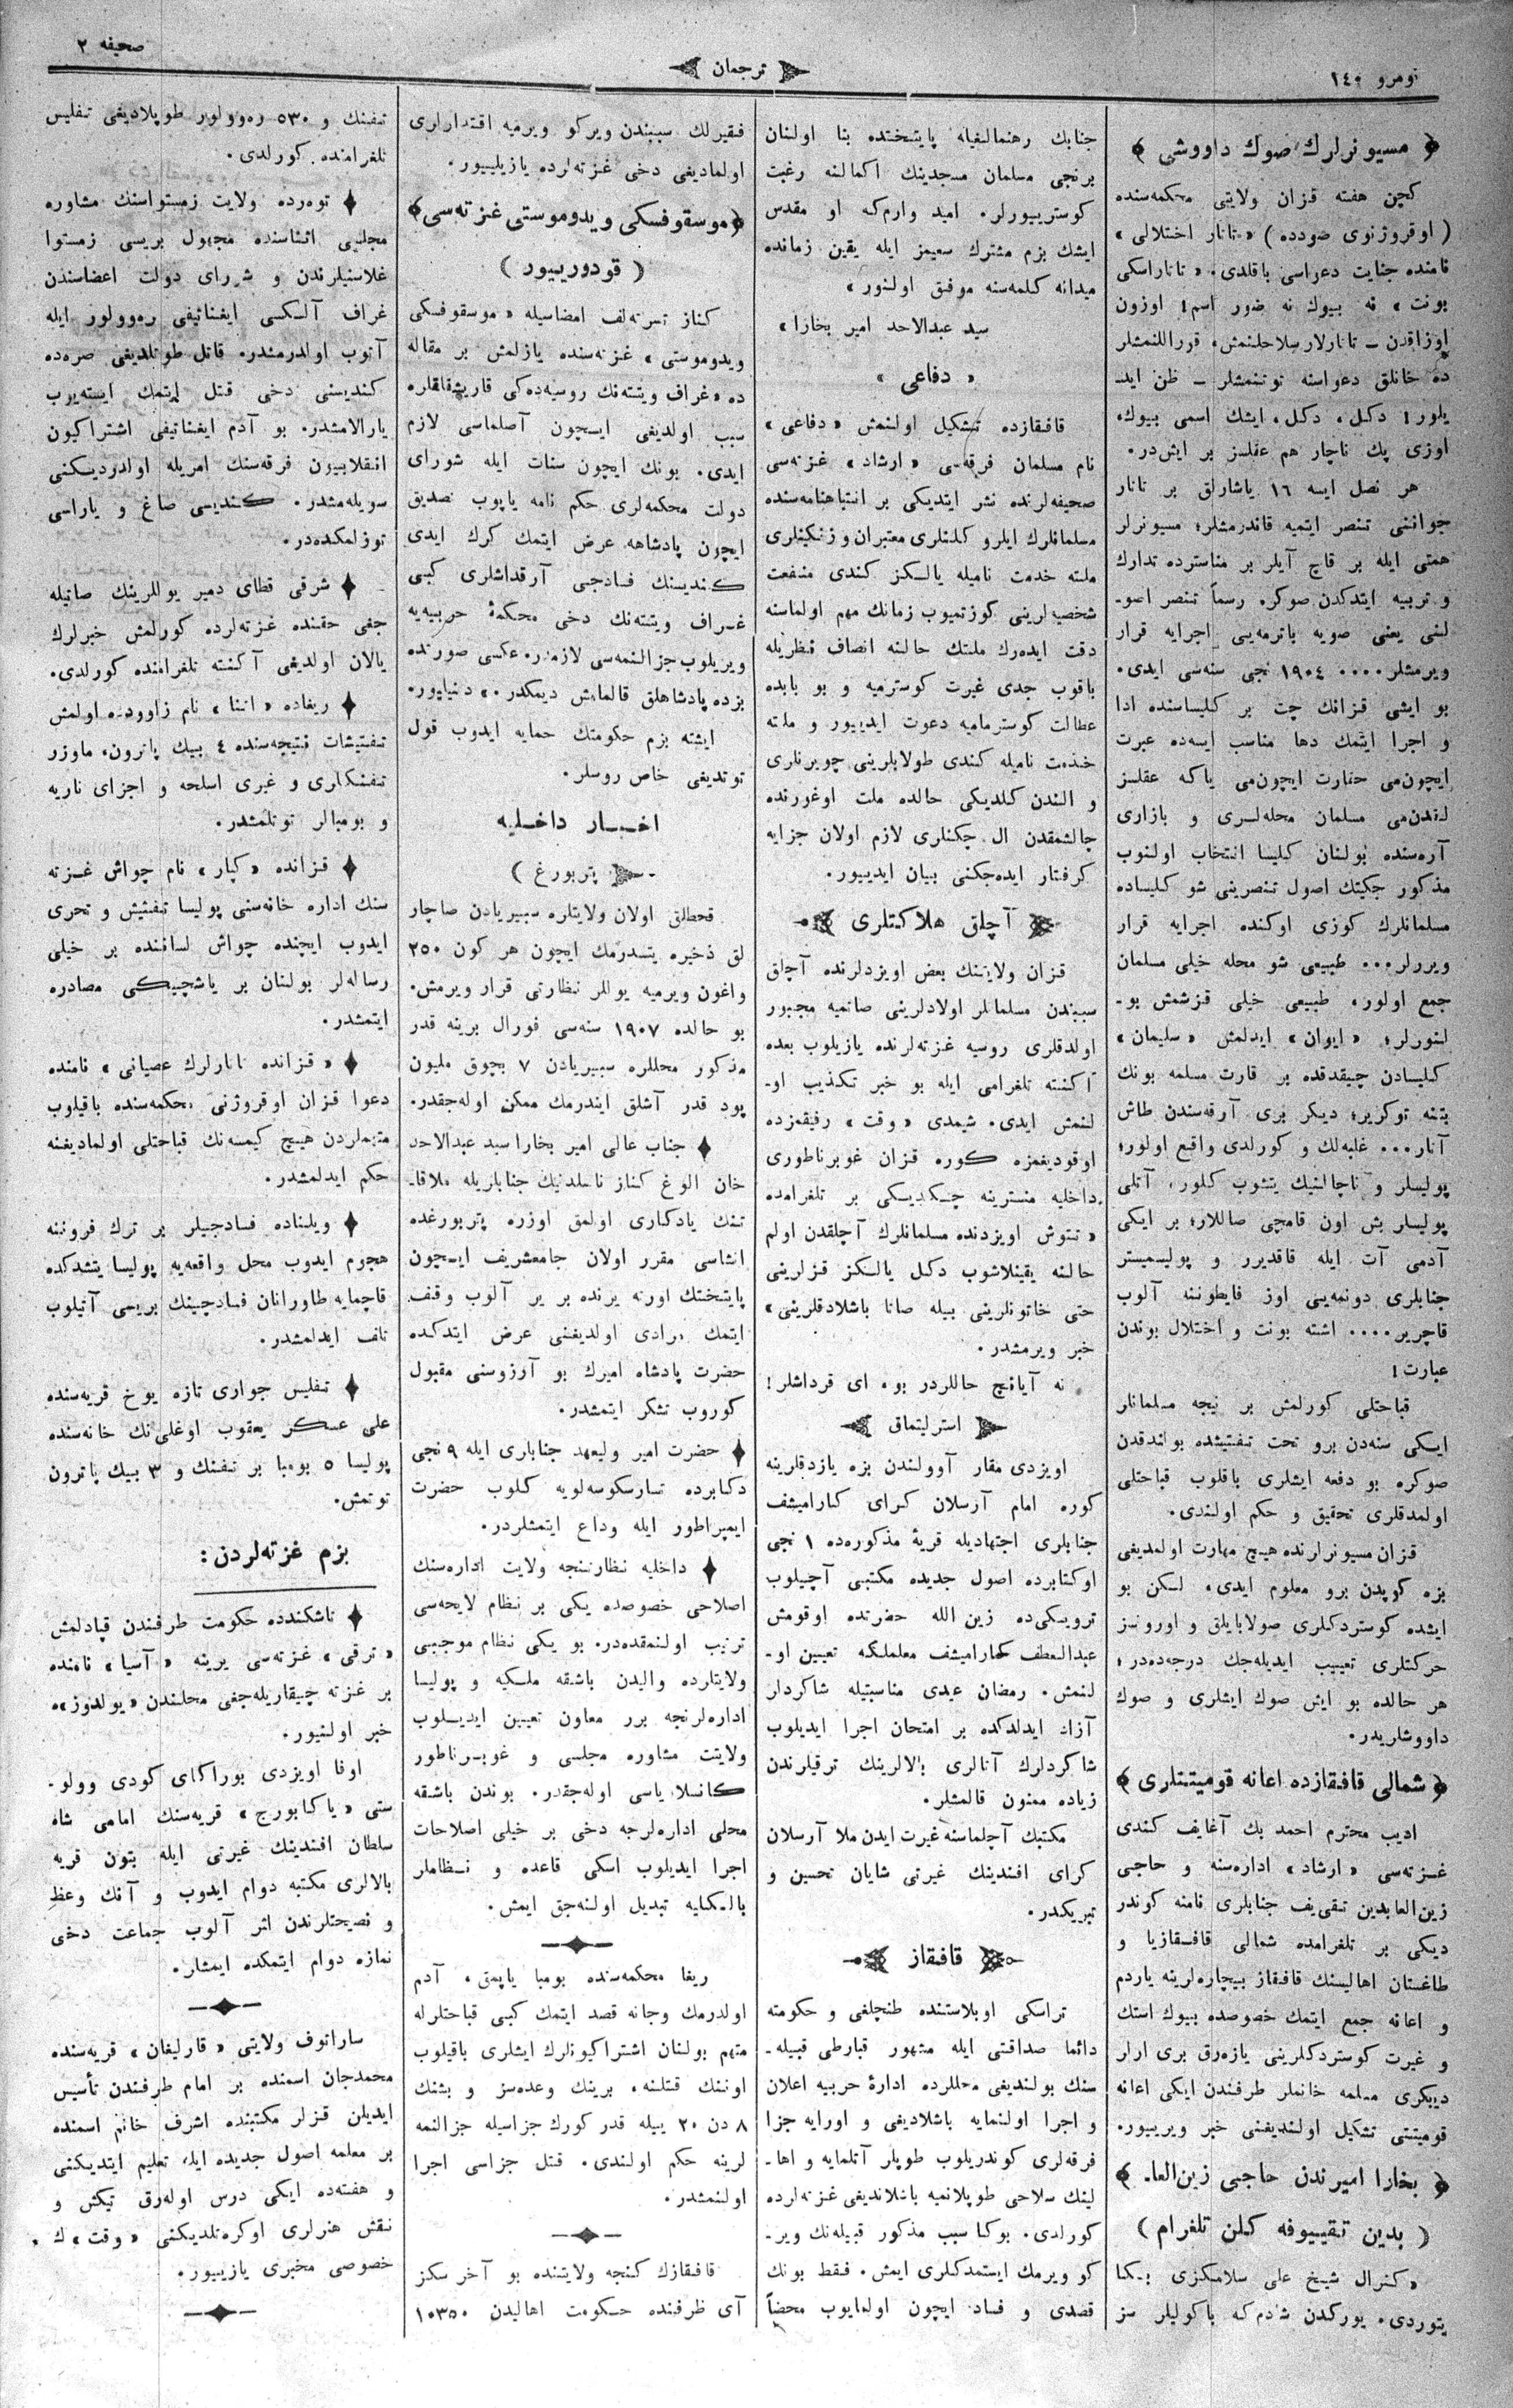 نومرو ١٤٠
ترجمان
صحيفه ٢
﴿ مسيونرلرك صوك داووشى ﴾
كچن هفته قزان ولايتى محكمه‌سنده
( اوقروژنوى صودده ) « تاتار اختلالى »
نامنده جنايت دعواسى باقلدى. « تاتاراسكى
بونت » نه بيوك نه ضور اسم! اوزون
اوزاقدن ــ تاتارلار سلاحلنمش، قوراللنمشلر
ده خانلق دعواسنه توتنمشلر ــ ظن ايد-
يلور! دكل، دكل، ايشك اسمى بيوك،
اوزى پك ناچار هم عقلسز بر ايش‌در.
هر نصل ايسه ١٦ ياشارلق بر تاتار
جواننى تنصر ايتميه قاندرمشلر؛ مسيونرلر
همتى ايله بر قاچ آيلر بر مناسترده تدارك
و تربيه ايتدكدن صوكره رسماً تنصر اصو-
لنى يعنى صويه باترمه‌يى اجرايه قرار
ويرمشلر.... ١٩٠٤ نجى سنه‌سى ايدى.
بو ايشى قزانك چت بر كليساسنده ادا
و اجرا ايتمك دها مناسب ايسه‌ده عبرت
ايچون‌مى حقارت ايچون‌مى ياكه عقلسز
لقدن‌مى مسلمان محله‌لسرى و بازارى
آره‌سنده بولنان كليسا انتخاب اولنوب
مذكور جكيتك اصول تنصرينى شو كليساده
مسلمانلرك كوزى اوكنده اجرايه قرار
ويررلر... طبيعى شو محله خيلى مسلمان
جمع اولور، طبيعى خيلى قزشمش بو-
لنورلر؛ « ايوان » ايدلمش « سليمان »
كليسادن چيقدقده بر قارت مسلمه بونك
يتنه توكرير؛ ديكر برى آرقه‌سندن طاش
آتار... غلبه‌لك و كورلدى واقع اولور؛
پوليسلر و ناچالنيك يتشوب كلور، آتلى
پوليسلر بش اون قامچى صاللار؛ بر ايكى
آدمى آت ايله قاقديرر و پوليسميستر
جنابلرى دونمه‌يى اوز فايطوننه آلوب
قاچرير.... اشته بونت و اختلال بوندن
عبارت!
قباحتلى كورلمش بر نيجه مسلمانلر
ايسكى سنه‌دن برو تحت تفتيشده بولندقدن
صوكره بو دفعه ايشلرى باقلوب قباحتلى
اولمدقلرى تحقيق و حكم اولندى.
قزان مسيونرلرنده هيچ مهارت اولمديغى
بزه كوپدن برو معلوم ايدى، لسكن بو
ايشده كوستردكلرى صولابايلق و اورونسز
حركتلرى تعييب ايديله‌جك درجه‌ده‌در؛
هر حالده بو ايش صوك ايشلرى و صوك
داووشلريدر.
﴿ شمالى قافقازده اعانه قوميتتلرى ﴾
اديب محترم احمد بك آغايف كندى
غزته‌سى « ارشاد » اداره‌سنه و حاجى
زين‌العابدين تقيف جنابلرى نامنه كوندر
ديكى بر تلغرامده شمالى قافقازيا و
طاغستان اهاليسنك قافقاز بيچاره‌لرينه ياردم
و اعانه جمع ايتمك خصوصده بيوك استك
و غيرت كوستردكلرينى يازه‌رق برى ارلر
ديكرى مسلمه خانملر طرفندن ايكى اعانه
قوميتتى تشكيل اولنديغنى خبر ويرييور.
﴿ بخارا اميرندن حاجى زين‌العا- ﴾
( بدين تقييوفه كلن تلغرام )
« كنرال شيخ على سلامكزى بكا
يتوردى. يوركدن شادم كه باكوليلر سز
جنابك رهنمالغيله پايتختده بنا اولنان
برنجى مسلمان مسجدينك اكمالنه رغبت
كوسترييورلر. اميد وارم‌كه او مقدس
ايشك بزم مشترك سعيمز ايله يقين زمانده
ميدانه كلمه‌سنه موفق اولنور »
سيد عبدالاحد امير بخارا »
« دفاعى »
قافقازده تشكيل اولنمش « دفاعى »
نام مسلمان فرقه‌سى « ارشاد » غزته‌سى
صحيفه‌لرنده نشر ايتديكى بر انتباهنامه‌سنده
مسلمانلرك ايلرو كلنلرى معتبران و زنكينلرى
ملته خدمت ناميله يالكز كندى منفعت
شخصيه‌لرينى كوزتميوب زمانك مهم اولماسنه
دقت ايده‌رك ملتك حالنه انصاف نظريله
باقوب جدى غيرت كوسترميه و بو بابده
عطالت كوسترماميه دعوت ايدييور و ملته
خدمت ناميله كندى طولابلرينى چويرنلرى
و الندن كلديكى حالده ملت اوغورنده
چالشمقدن ال چكنلرى لازم اولان جزايه
كرفتار ايده‌جكنى بيان ايدييور.
آچلق هلاكتلرى
قزان ولايتنك بعض اويزدلرنده آچلق
سببندن مسلمانلر اولادلرينى صاتميه مجبور
اولدقلرى روسيه غزته‌لرنده يازيلوب بعده
آكنته تلغرامى ايله بو خبر تكذيب او-
لنمش ايدى. شيمدى « وقت » رفيقمزده
اوقوديغمزه كوره قزان غوبرناطورى
داخليه منسترينه چكديكى بر تلغرامده
« تتوش اويزدنده مسلمانلرك آچلقدن اولم
حالنه يقينلاشوب دكل يالكز قزلرينى
حتى خاتونلرينى بيله صاتا باشلادقلرينى »
خبر ويرمشدر.
نه آيانچ حاللردر بو، اى قرداشلر!
استرليتماق
اويزدى مقار آوولندن بزه يازدقلرينه
كوره امام آرسلان كراى كاراميشف
جنابلرى اجتهاديله قريۀ مذكوره‌ده ١ نجى
اوكتابرده اصول جديده مكتبى آچيلوب
ترويسكى‌ده زين الله حضرتده اوقومش
عبدالعطف كاراميشف معلملكه تعيين او-
لنمش. رمضان عيدى مناسبتيله شاكردلر
آزاد ايدلدكده بر امتحان اجرا ايديلوب
شاكردلرك آنالرى بالالرينك ترقيلرندن
زياده ممنون قالمشلر.
مكتبك آچلماسنه غيرت ايدن ملا آرسلان
كراى افندينك غيرتى شايان تحسين و
تبريكدر.
قافقاز
تراسكى اوبلاستنده طنچلغى و حكومته
دائما صداقتى ايله مشهور قبارطى قبيله-
سنك بولنديغى محللرده ادارۀ حربيه اعلان
و اجرا اولنمايه باشلاديغى و اورايه جزا
فرقه‌لرى كوندريلوب طوپلر آتلمايه و اها-
لينك سلاحى طوپلانميه باشلانديغى غزته‌لرده
كورلدى. بوكا سبب مذكور قبيله‌نك وير-
كو ويرمك ايستمدكلرى ايمش. فقط بونك
قصدى و فساد ايچون اولمايوب محضاً
فقيرلك سببندن ويركو ويرميه اقتدارلرى
اولماديغى دخى غزته‌لرده يازيلييور.
﴿موسقوفسكى ويدوموستى غزته‌سى﴾
( قودورييور )
كناز تسرته‌لف امضاسيله « موسقوفسكى
ويدوموستى » غزته‌سنده يازلمش بر مقاله
ده «غراف ويتته‌نك روسيه‌ده‌كى قاريشقلقلره
سبب اولديغى ايچون آصلماسى لازم
ايدى. بونك ايچون سنات ايله شوراى
دولت محكمه‌لرى حكم نامه ياپوب تصديق
ايچون پادشاهه عرض ايتمك كرك ايدى
كنديسنك فسادجى آرقداشلرى كبى
غراف ويتته‌نك دخى محكمۀ حربيه‌يه
ويريلوب جزالنمه‌سى لازمدر. عكسى صورتده
بزده پادشاهلق قالمامش ديمكدر. » دنيليور.
ايشته بزم حكومتك حمايه ايدوب قول
توتديغى خاص روسلر.
اخبار داخليه
پتربورغ )
قحطلق اولان ولايتلره سيبريادن صاچار
لق ذخيره يتشدرمك ايچون هر كون ٢٥٠
واغون ويرميه يوللر نظارتى قرار ويرمش.
بو حالده ١٩٠٧ سنه‌سى فورال برينه قدر
مذكور محللره سيبريادن ٧ بچوق مليون
پود قدر آشلق ايندرمك ممكن اوله‌جقدر.
جناب عالى امير بخارا سيد عبدالاحد
خان الوغ كناز جنابلريله ملاقا-
تنك يادكارى اولمق اوزره پتربورغده
انشاسى مقرر اولان جامعشريف ايچون
پايتختك اورته يرنده بر ير آلوب وقف
ايتمك مرادى اولديغنى عرض ايتدكده
حضرت پادشاه اميرك بو آرزوسنى مقبول
كوروب تشكر ايتمشدر.
حضرت امير وليعهد جنابلرى ايله ٩ نجى
دكابرده تسارسكوسه‌لويه كلوب حضرت
ايمپراطور ايله وداع ايتمشلردر.
داخليه نظارتنجه ولايت اداره‌سنك
اصلاحى خصوصده يكى بر نظام لايحه‌سى
ترتيب اولنمقده‌در. بو يكى نظام موجبنجه
ولايتلرده واليدن باشقه ملكيه و پوليسا
اداره‌لرنجه برر معاون تعيين ايديلوب
ولايتت مشاوره مجلسى و غوبرناطور
كانسلارياسى اوله‌جقدر. بوندن باشقه
محلى اداره‌لرجه دخى بر خيلى اصلاحات
اجرا ايديلوب اسكى قاعده و نظاملر
بالكليه تبديل اولنه‌جق ايمش.
ريغا محكمه‌سنده بومبا ياپمق، آدم
اولدرمك وجانه قصد ايتمك كبى قباحتلرله
متهم بولنان اشتراكيونلرك ايشلرى باقيلوب
اوننك قتلنه، برينك وعده‌سز و بشنك
٨ دن ٢٠ ييله قدر كورك جزاسيله جزالنمه
لرينه حكم اولندى. قتل جزاسى اجرا
اولنمشدر.
قافقازك كنجه ولايتنده بو آخر سكز
آى ظرفنده حكومت اهاليدن ١٠٣٥٠
تفنك و ٥٣٠ ره‌وولور طوپلاديغى تفليس
تلغرامنده كورلدى.
توه‌رده ولايت زمستواسنك مشاوره
مجلسى اثناسنده مجهول بريسى زمستوا
غلاسنيلرندن و شوراى دولت اعضاسندن
غراف آلكسى ايغناتيفى ره‌وولور ايله
آتوب اولدرمشدر. قاتل طوتلديغى صره‌ده
كنديسنى دخى قتل ايتمك ايسته‌يرب
يارالامشدر. بو آدم ايغناتيفى اشتراكيون
انقلابيون فرقه‌سنك امريله اولدرديكنى
سويله‌مشدر. كنديسى صاغ و ياراسى
توزلمكده‌در.
شرقى قطاى دمير يوللرينك صاتيله
جغى حقنده غزته‌لرده كورلمش خبرلرك
يالان اولديغى آكنته تلغرامنده كورلدى.
ريغاده « اتنا » نام زاووده اولمش
تفتيشات نتيجه‌سنده ٤ بيك پاترون، ماوزر
تفنكلرى و غيرى اسلحه و اجزاى ناريه
و بومبالر توتلمشدر.
قزانده « كپار » نام چواش غزته
سنك اداره خانه‌سنى پوليسا تفتيش و تحرى
ايدوب ايچنده چواش لسانده بر خيلى
رساله‌لر بولنان بر ياشچيكى مصادره
ايتمشدر.
« قزانده تاتارلرك عصيانى » نامنده
دعوا قزان اوقروژنى محكمه‌سنده باقيلوب
متهملردن هيچ كيمسه‌نك قباحتلى اولماديغنه
حكم ايدلمشدر.
ويلناده فسادجيلر بر ترك فروننه
هجوم ايدوب محل واقعه‌يه پوليسا يتشدكده
قاچمايه طاورانان فسادچينك بريسى آتيلوب
تلف ايدلمشدر.
تفليس جوارى تازه يوخ قريه‌سنده
على عسكر يعقوب اوغلى‌نك خانه‌سنده
پوليسا ٥ بومبا بر تفنك و ٣ بيك پاترون
توتمش.
بزم غزته‌لردن:
تاشكندده حكومت طرفندن قپادلمش
« ترقى » غزته‌سى يرينه « آسيا » نامنده
بر غزته چيقاريله‌جغى محلندن «يولدوز»ه
خبر اولنيور.
اوفا اويزدى بوراكاى كودى وولو-
ستى « ياكابورج » قريه‌سنك امامى شاه
سلطان افندينك غيرتى ايله بتون قريه
بالالرى مكتبه دوام ايدوب و آنك وعظ
و نصيحتلرندن اثر آلوب جماعت دخى
نمازه دوام ايتمكده ايمشلر.
ساراتوف ولايتى « قارليغان » قريه‌سنده
محمدجان اسمنده بر امام طرفندن تأسيس
ايديلن قزلر مكتبنده اشرف خانم اسمنده
بر معلمه اصول جديده ايله تعليم ايتديكنى
و هفته‌ده ايكى درس اوله‌رق تيكش و
نقش هنرلرى اوكره‌تلديكنى « وقت »ك
خصوصى مخبرى يازييور.